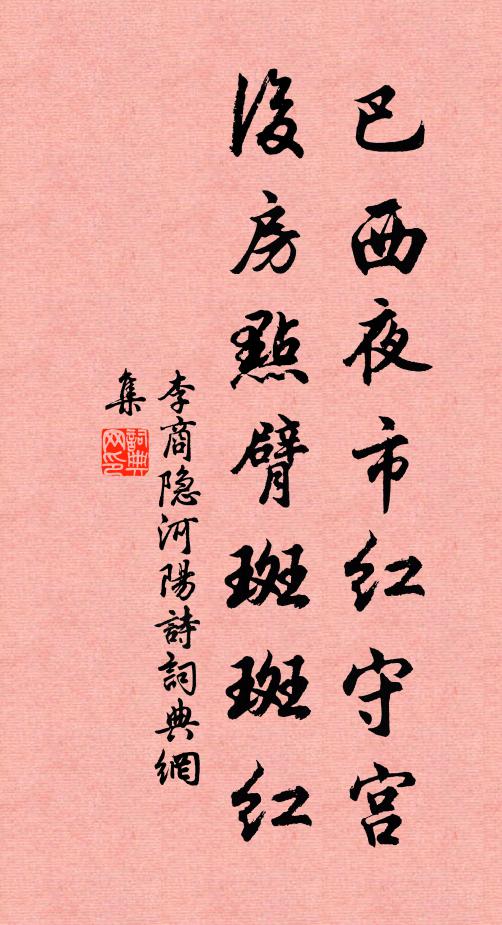 巴西夜市红守宫
後房點臂斑斑红
李商隐河陽詩詞典網
集
詞典网印